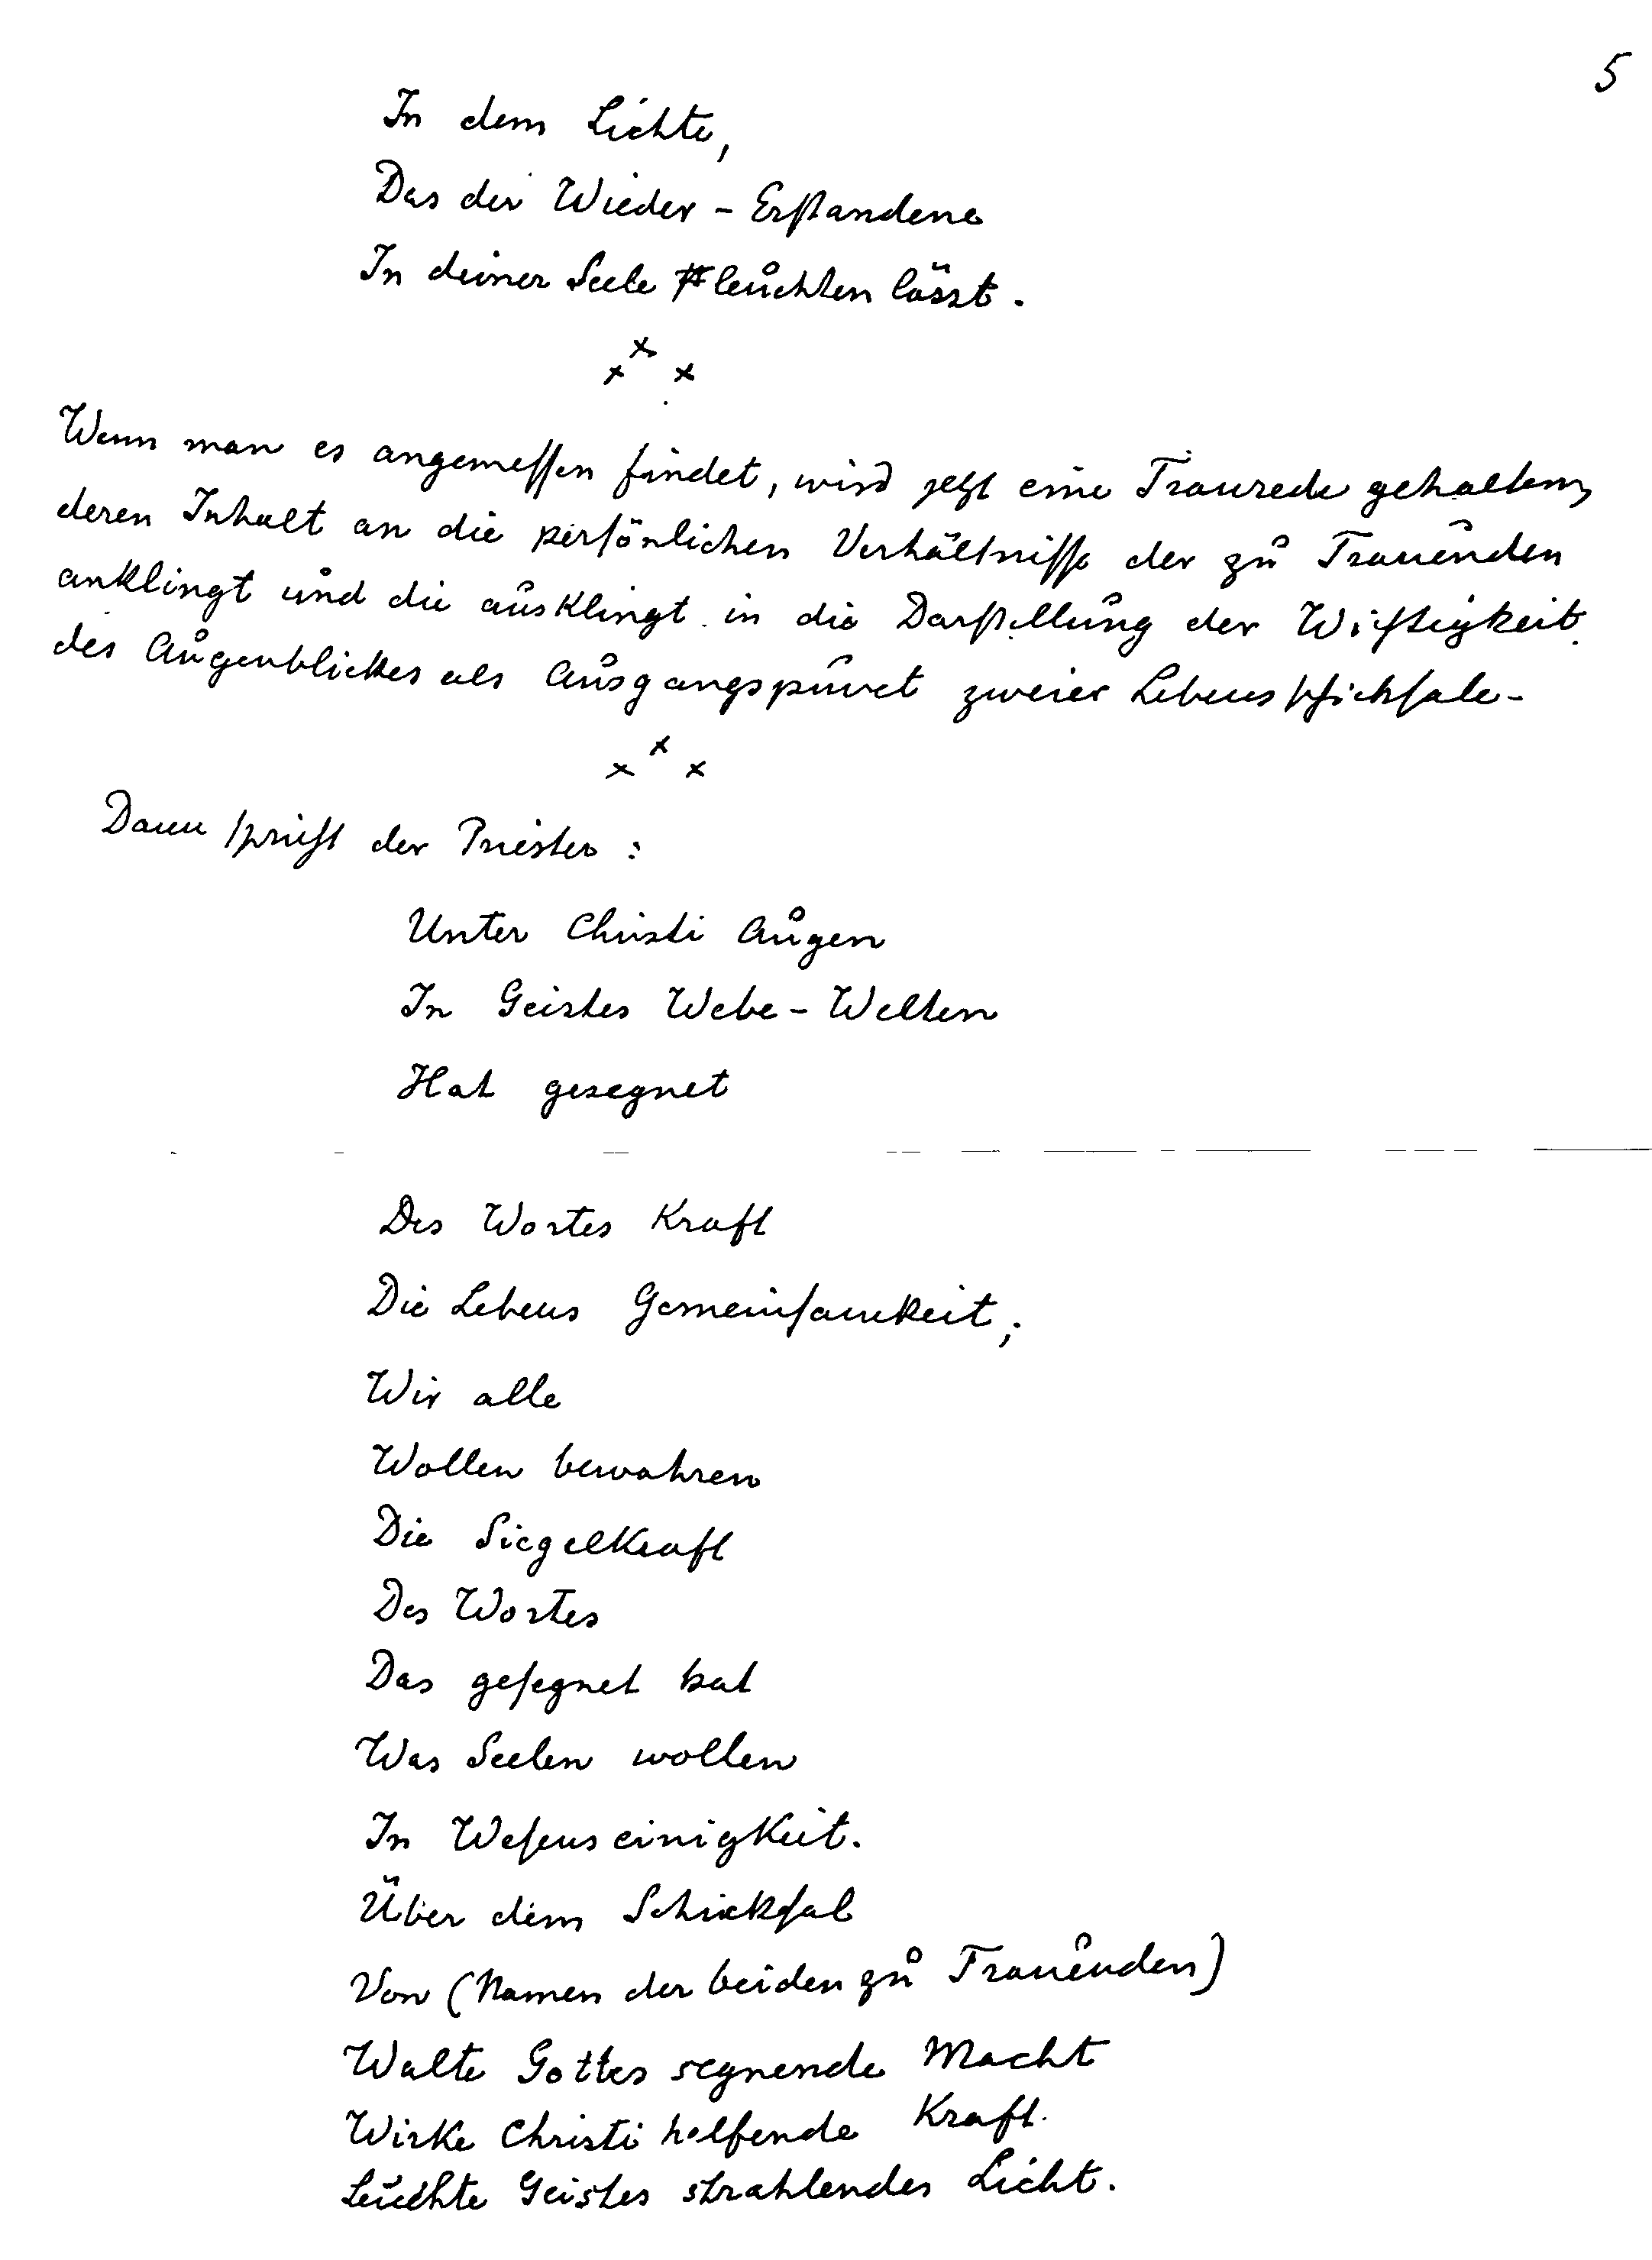 5
In dem Lichte,
Das der Wieder-Erstandene
In deiner Seele leuchten lässt.
Wenn man es angemessen findet, wird jetzt eine Traurede gehalten,
deren Inhalt an die persönlichen Verhältnisse der zu Trauenden
anklingt und die ausklingt in die Darstellung der Wichtigkeit
des Augenblickes als Ausgangspunct zweier Lebensschicksale-
Dann spricht der Priester:
Unter Christi Augen
In Geistes Webe-Welten
Hat gesegnet
Des Wortes Kraft
Die Lebens Gemeinsamkeit;
Wir alle
Wollen bewahren
Die Siegelkraft
Des Wortes
Das gesegnet hat
Was Seelen wollen
In Wesenseinigkeit.
Über dem Schicksal
Von (Namen der beiden zu Trauenden)
Walte Gottes segnende Macht
Wirke Christi helfende Kraft.
Leuchte Geistes strahlendes Licht.